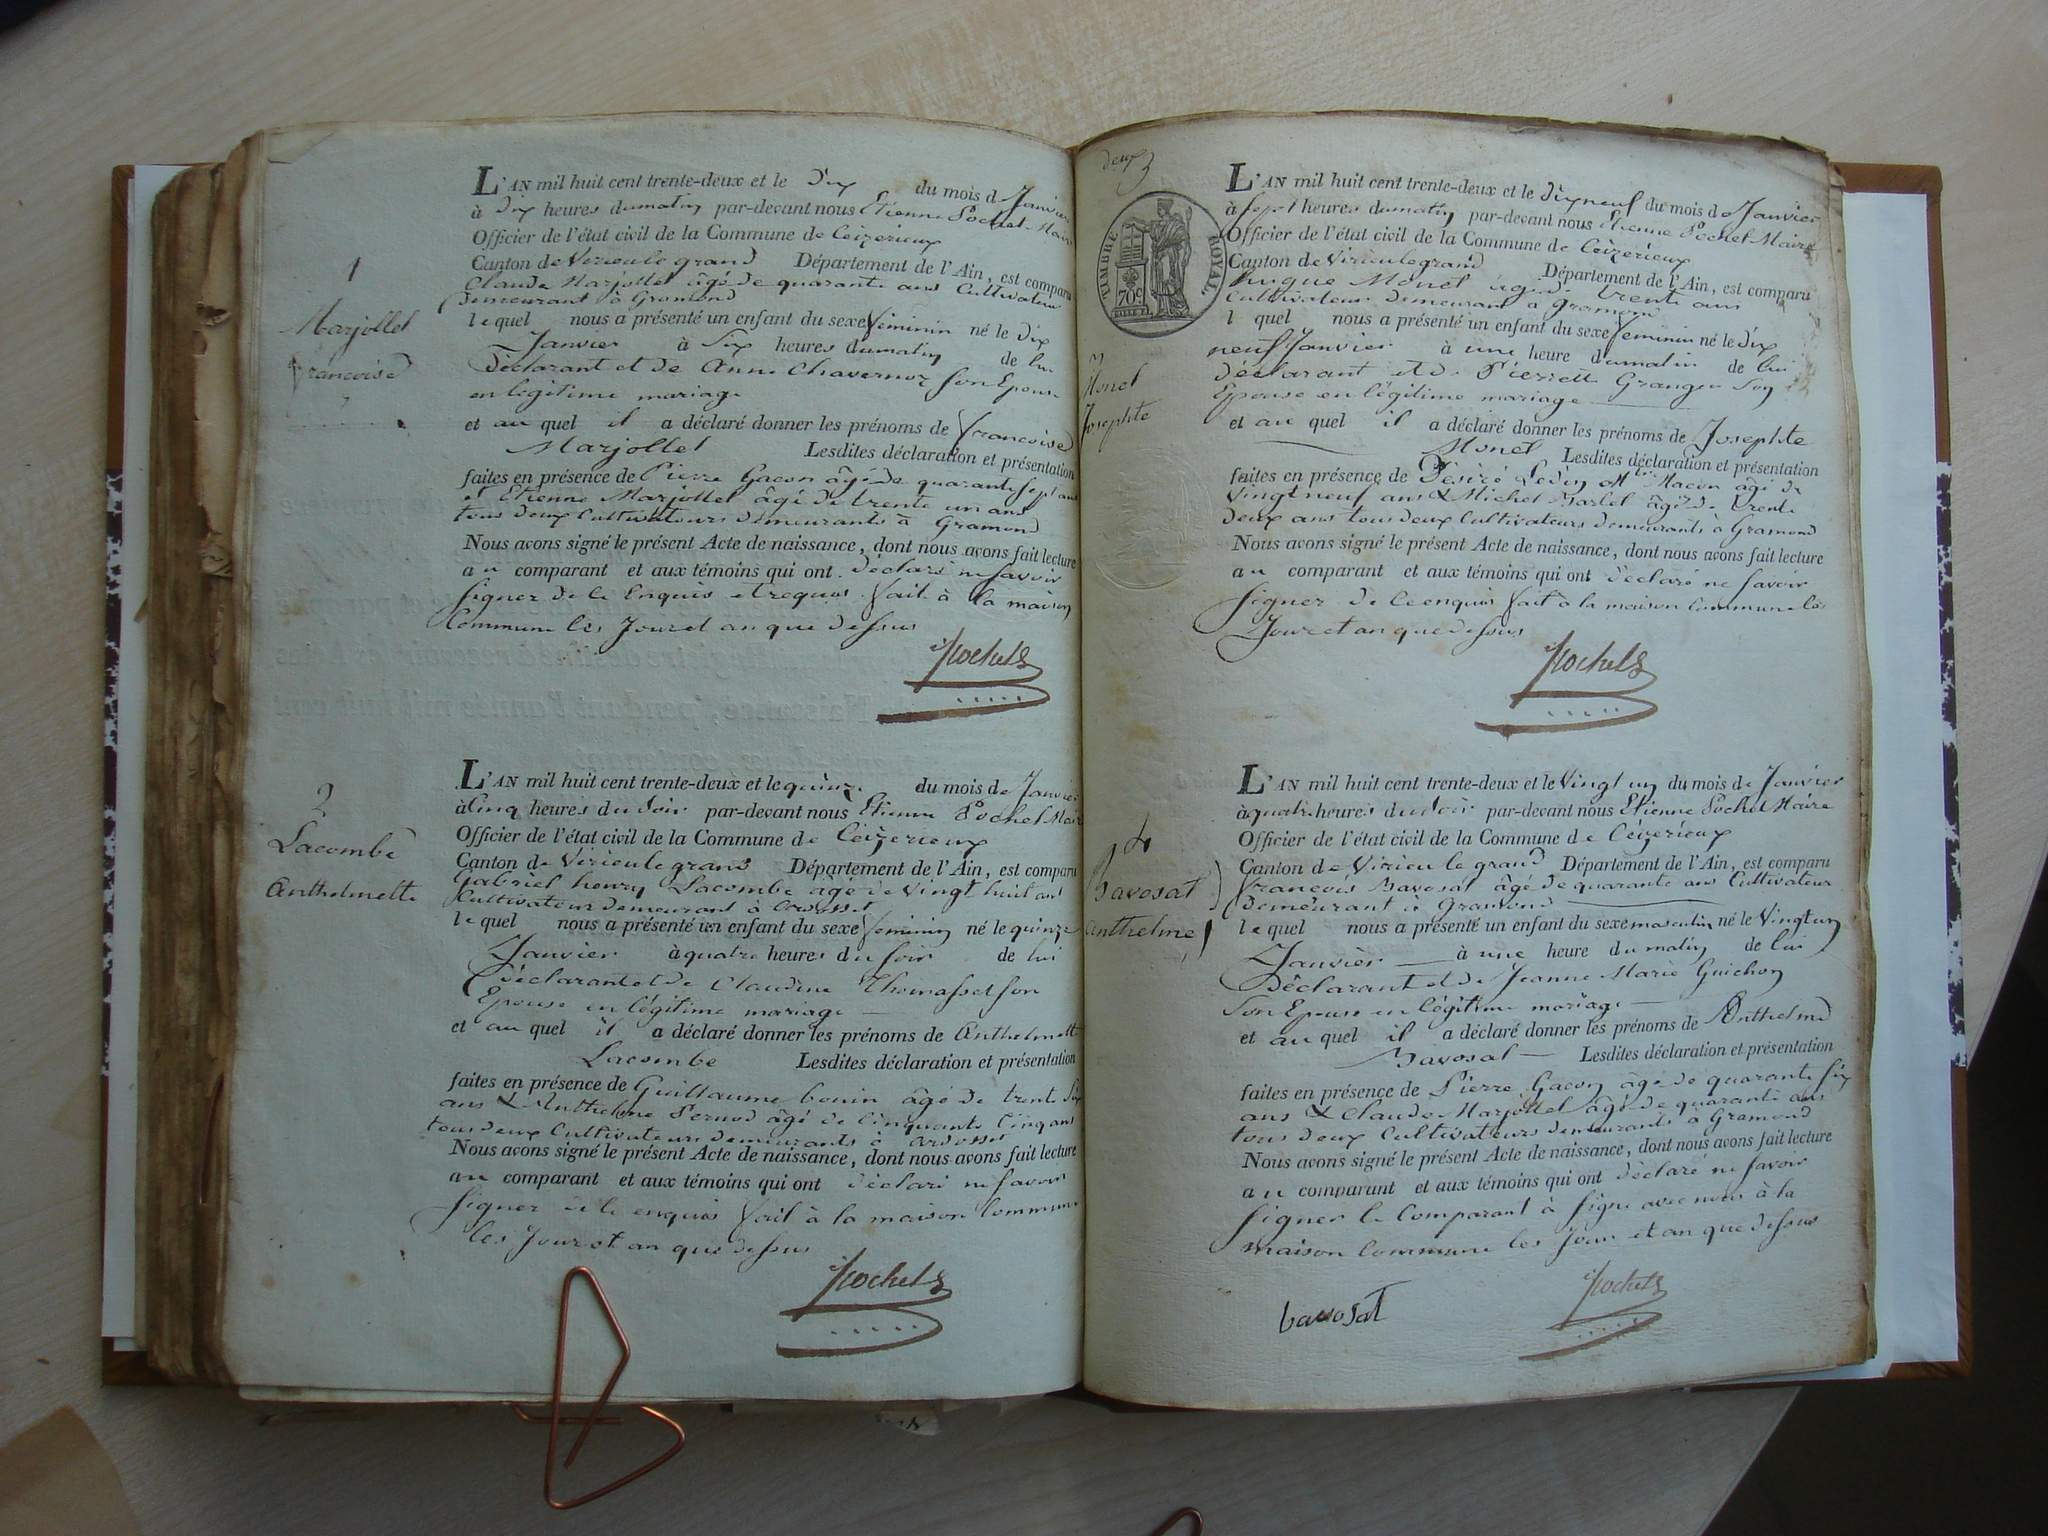 1
Marjollet
françoise
L'AN mil huit cent trente-deux et le Dix du mois d Janvier
à Dix heures du matin par-devant nous Etienne Pochet Maire
Officier de l'état civil de la Commune de Ceÿzerieux
Canton de Virieu le grand Département de l'Ain, est comparu
Claude Marjollet âgé de quarante ans Cultivateur
demeurant à Gramond
lequel nous a présenté un enfant du sexe féminin né le dix
Janvier à Six heures du matin de lui
Déclarant et de Anne Chavernoz son Epouse
en légitime mariage
et au quel il a déclaré donner les prénoms de françoise
Marjollet Lesdites déclaration et présentation
faites en présence de Pierre Gacon âgé de quarante sept ans
et Etienne Marjollet âgé de trente un ans
tous deux Cultivateurs demeurants à Gramond
Nous avons signé le présent Acte de naissance, dont nous avons fait lecture
au comparant et aux témoins qui ont déclaré ne savoir
signer de ce Enquis et requis fait à la maison
Commune les Jour et an que dessus
Pochet
2
Lacombe
Anthelmette
L'AN mil huit cent trente-deux et le quinze du mois de Janvier
à Cinq heures du soir par-devant nous Etienne Pochet Maire
Officier de l'état civil de la Commune de Ceÿzerieux
Canton de Virieu le grand Département de l'Ain, est comparu
Gabriel henry Lacombe âgé de vingt huit ans
Cultivateur demeurant à Ardosset
le quel nous a présenté un enfant du sexe féminin né le quinze
Janvier à quatre heures du soir de lui
Déclarant et de Claudine Thomasset son
Epouse en légitime mariage
et au quel il a déclaré donner les prénoms de Anthelmette
Lacombe Lesdites déclaration et présentation
faites en présence de Guillaume bonin âgé de trente Six
ans & Anthelme Pernod âgé de Cinquante Cinq ans
tous deux Cultivateurs demeurants à Ardosset
Nous avons signé le présent Acte de naissance, dont nous avons fait lecture
au comparant et aux témoins qui ont déclaré ne savoir
signer de ce enquis fait à la maison Commune
les Jour et an que dessus
Pochet
deux
TIMBRE ROYAL
70c
3
Monet
Josephte
L'AN mil huit cent trente-deux et le dix neuf du mois de Janvier
à sept heures du matin par-devant nous Etienne Pochet Maire
Officier de l'état civil de la Commune de Ceÿzerieux
Canton de Virieu le grand Département de l'Ain, est comparu
hugue Monet âgé de trente ans
Cultivateur demeurant à Gramond
l quel nous a présenté un enfant du sexe féminin né le Dix
neuf Janvier à une heure du matin de lui
déclarant et de Pierrette Granger Son
Epouse en légitime mariage
et au quel il a déclaré donner les prénoms de Josephte
Monet Lesdites déclaration et présentation
faites en présence de Désiré Macon âgé de
vingt neuf ans & Michel Marlet âgé de trente
deux ans tous deux Cultivateurs demeurants à Gramond
Nous avons signé le présent Acte de naissance, dont nous avons fait lecture
au comparant et aux témoins qui ont déclaré ne savoir
signer de ce enquis fait à la maison Commune les
Jour et an que dessus
Pochet
4
Bavosat
Anthelme
L'AN mil huit cent trente-deux et le Vingt un du mois de Janvier
à quatre heures du soir par-devant nous Etienne Pochet Maire
Officier de l'état civil de la Commune de Ceÿzerieux
Canton de Virieu le grand Département de l'Ain, est comparu
françois Bavosat âgé de quarante ans Cultivateur
demeurant à Gramond
le quel nous a présenté un enfant du sexe masculin né le Vingt un
Janvier à une heure du matin de lui
Déclarant et de Jeanne Marie Guichon
Son Epouse en légitime mariage
et au quel il a déclaré donner les prénoms de Anthelme
Bavosat Lesdites déclaration et présentation
faites en présence de Pierre Gacon âgé de quarante six
ans & Claude Marjollet âgé de quarante ans
tous deux Cultivateurs demeurants à Gramond
Nous avons signé le présent Acte de naissance, dont nous avons fait lecture
au comparant et aux témoins qui ont déclaré ne savoir
signer le Comparant à signé avec nous à la
maison Commune les Jour et an que dessus
bavosat
Pochet